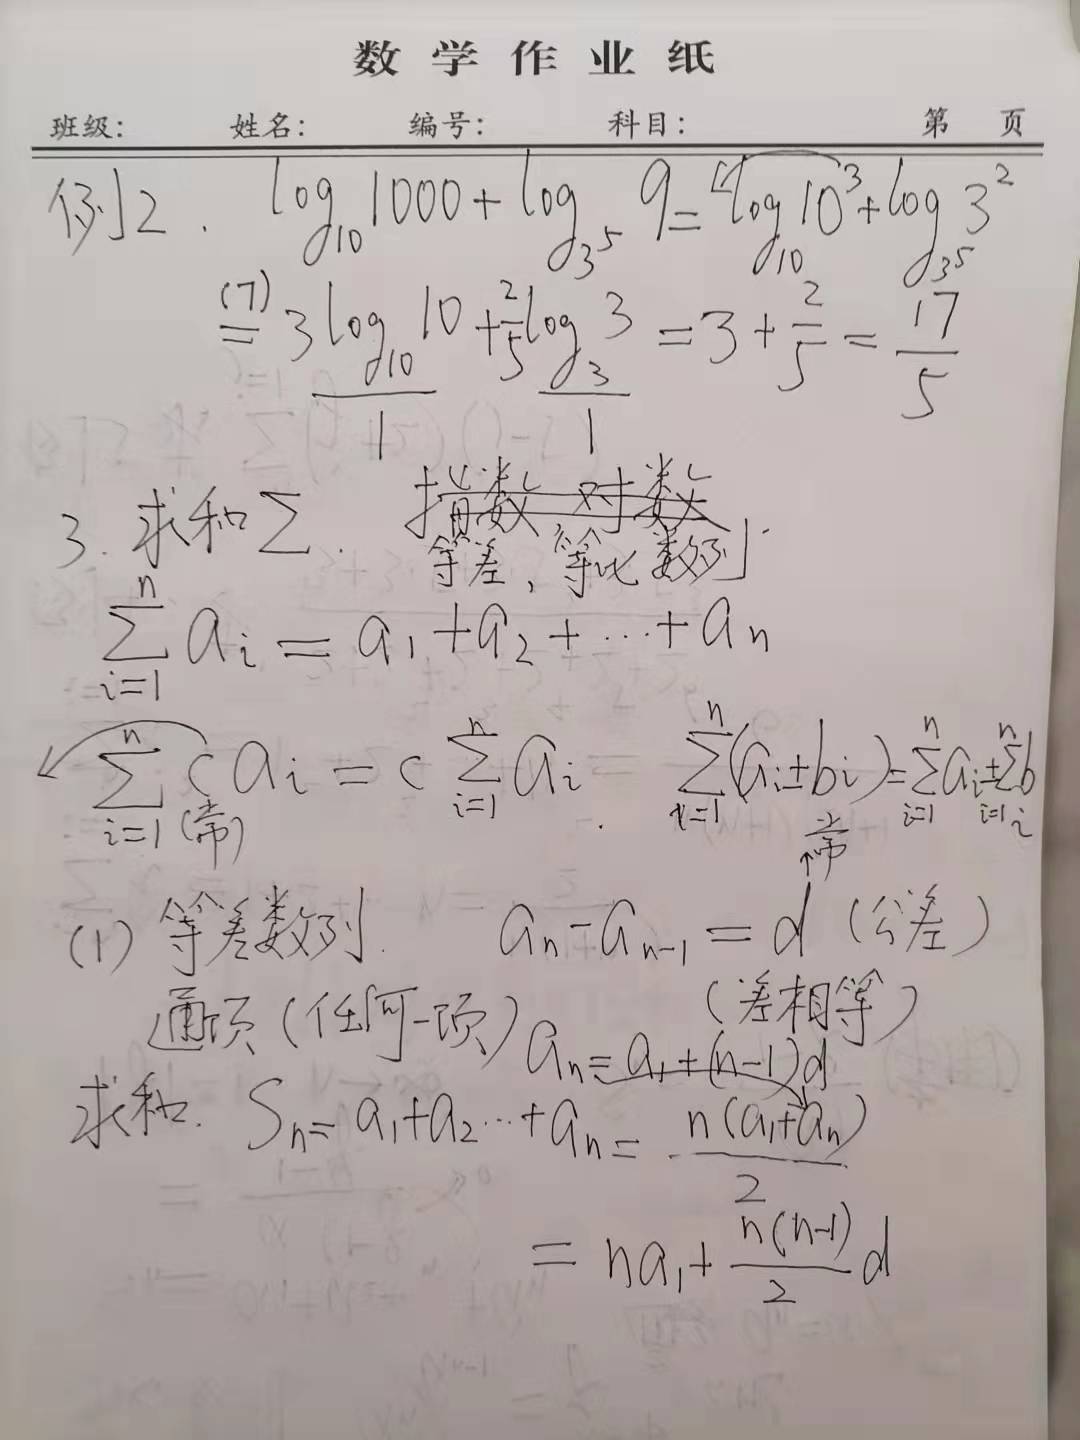 数学作业纸
班级: 姓名: 编号: 科目: 第 页
例2. log₁₀1000+log₃⁵ 9=log₁₀10³+log₃⁵3²
(7)= 3log₁₀10+2/5log₃3=3+2/5=17/5
1 1
3. 求和Σ. 指数 对数
等差, 等比数列
n
Σ aᵢ=a₁+a₂+…+aₙ
i=1
n n n n n
Σ caᵢ=c Σ aᵢ. Σ(aᵢ±bᵢ)=Σaᵢ±Σbᵢ
i=1 (常) i=1 i=1 i=1 i=1
常
(1) 等差数列. aₙ-aₙ₋₁=d (公差)
(差相等)
通项(任何一项) aₙ=a₁+(n-1)d
求和. Sₙ=a₁+a₂…+aₙ=n(a₁+aₙ)/2
=na₁+n(n-1)/2 d